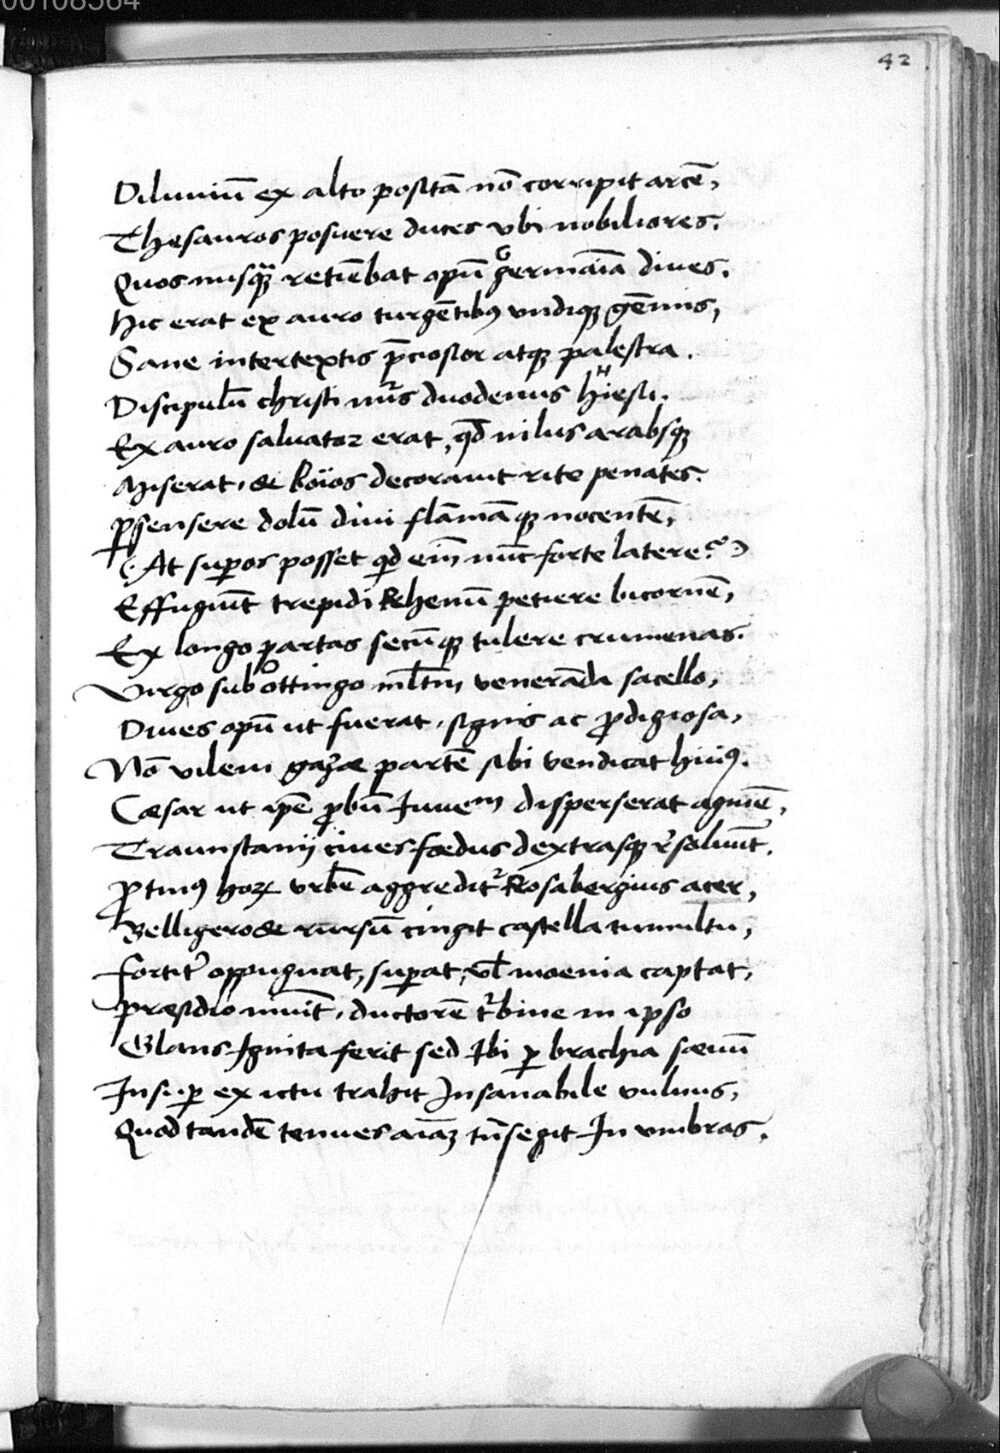 00108564
42
Diluuiũ ex alto positã nõ corripit arcẽ,
Thesauros posuere duces vbi nobiliores.
Quos nusqꝫ retiẽbat opũ Germaĩa diues.
Hic erat ex auro turgẽtibꝰ vndiqꝫ gẽmis,
Sane intertextis p̃ciosior atqꝫ palestra.
Discipulũ christi nũs duodenus Hiesu.
Ex auro saluator erat, qd̃ nilus arabsqꝫ
Miserat, & boios decorauit rite penates.
Psensere dolũ diui flãmãqꝫ nocentẽ,
(At suꝑos posset qd eĩ nũc forte latere?)
Effugiũt trepidi Rhenũ petiere bicornẽ,
Ex longo partas secũqꝫ tulere crumenas.
Virgo sub Ottingo ml̃tm venerãda sacello,
Diues opũ ut fuerat, signis ac ꝓdigiosa,
Nõ vilem gazæ partẽ sibi vendicat huiꝰ.
Cæsar ut ip̃e ꝓbũ Iuuem disperserat agmẽ,
Traunstanij ciues fœdus dextrasqꝫ r̃soluũt.
ꝓtinꝰ hoꝝ vrbẽ aggredit᷑ Rosabergius acer,
Belligero & rursũ cingit castella tumultu,
Fortit᷑ oppugnat, suꝑat, vl̃ moenia captat,
Præsidio muĩt, ductorẽ t᷑bine in ipso
Glans Ignita ferit sed Ibi ꝑ brachia sæuũ
Insuꝑ ex ictu trahit Insanabile vulnus,
Quod tandẽ tenues aĩaꝫ tñsegit In vmbras.